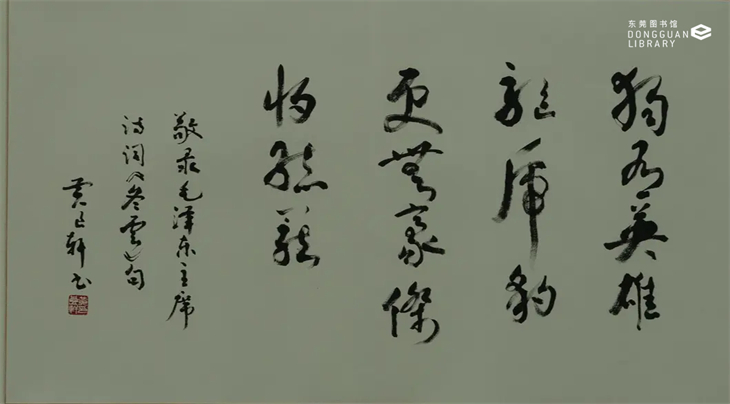 東莞图书馆
DONGGUAN
LIBRARY
獨有英雄
驅虎豹
更無豪傑
怕熊羆
敬录毛泽东主席
诗词《冬雲》句
黄 轩书